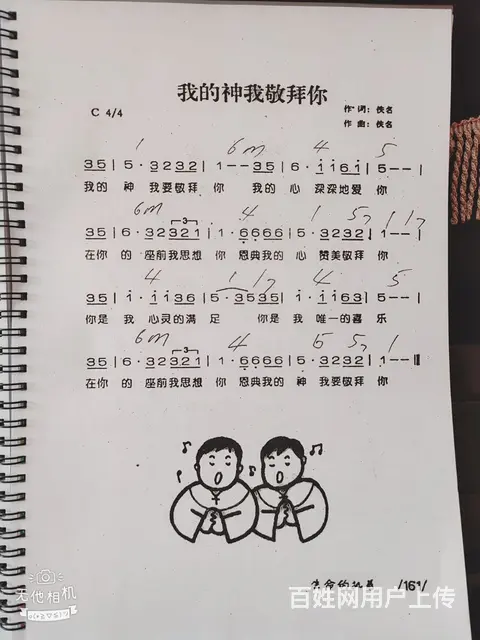 我的神我敬拜你
C 4/4
作词：佚名
作曲：佚名
1 6m 4 5
35 | 5· 3232 | 1 - - 35 | 6· i i6i | 5 - - |
我的 神 我要敬拜 你 我的 心 深深地爱 你
6m 4 1 57 1 17
35 | 6· 32321 | 1· 6666 | 5· 3232 | 1 - - |
在你 的 座前我思想 你 恩典我的 心 赞美敬拜 你
4 1 17 4 5
35 | i· i i36 | 5· 3535 | i· i i63 | 5 - - |
你是 我 心灵的满 足 你是 我 唯一的喜 乐
6m 4 5 57 1
35 | 6· 32321 | 1· 6666 | 5· 3232 | 1 - -
在你 的 座前我思想 你 恩典我的 神 我要敬拜 你
/161/
无他相机
百姓网用户上传